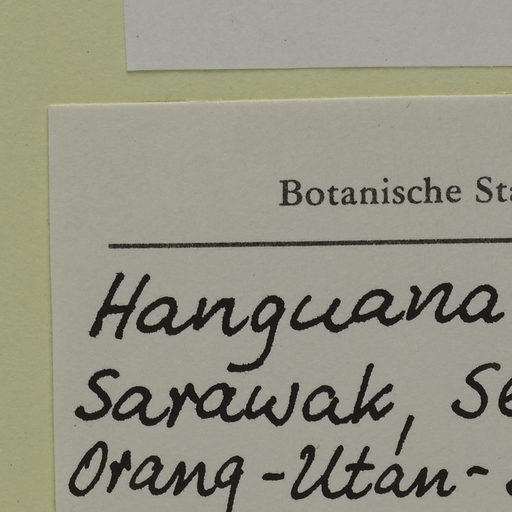 Botanische
Hanguana
Sarawak,
Orang-Után-